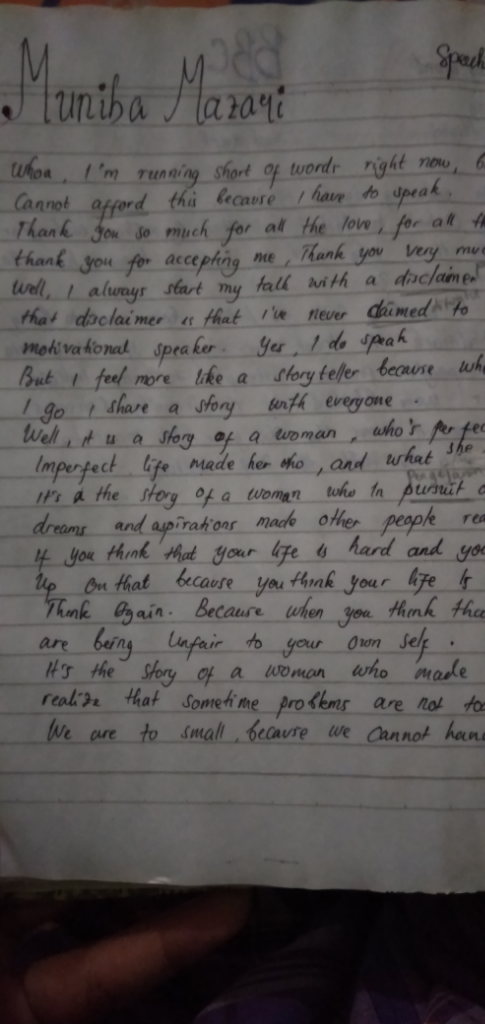 Speech
Muniba Mazari
Whoa, I'm running short of words right now,
Cannot afford this because I have to speak.
Thank you so much for all the love, for all
thank you for accepting me, Thank you very
Well, I always start my talk with a disclaimer
that disclaimer is that I've never claimed to
motivational speaker. Yes, I do speak
But I feel more like a storyteller because
I go I share a story with everyone.
Well, it is a story of a woman, who's
Imperfect life made her who, and what she
It's a the story of a woman who in pursuit
dreams and aspirations made other people
If you think that your life is hard and
Up on that because you think your life is
Think Again. Because when you think
are being Unfair to your own self.
It's the story of a woman who made
realize that sometime problems are not
We are to small, because we cannot